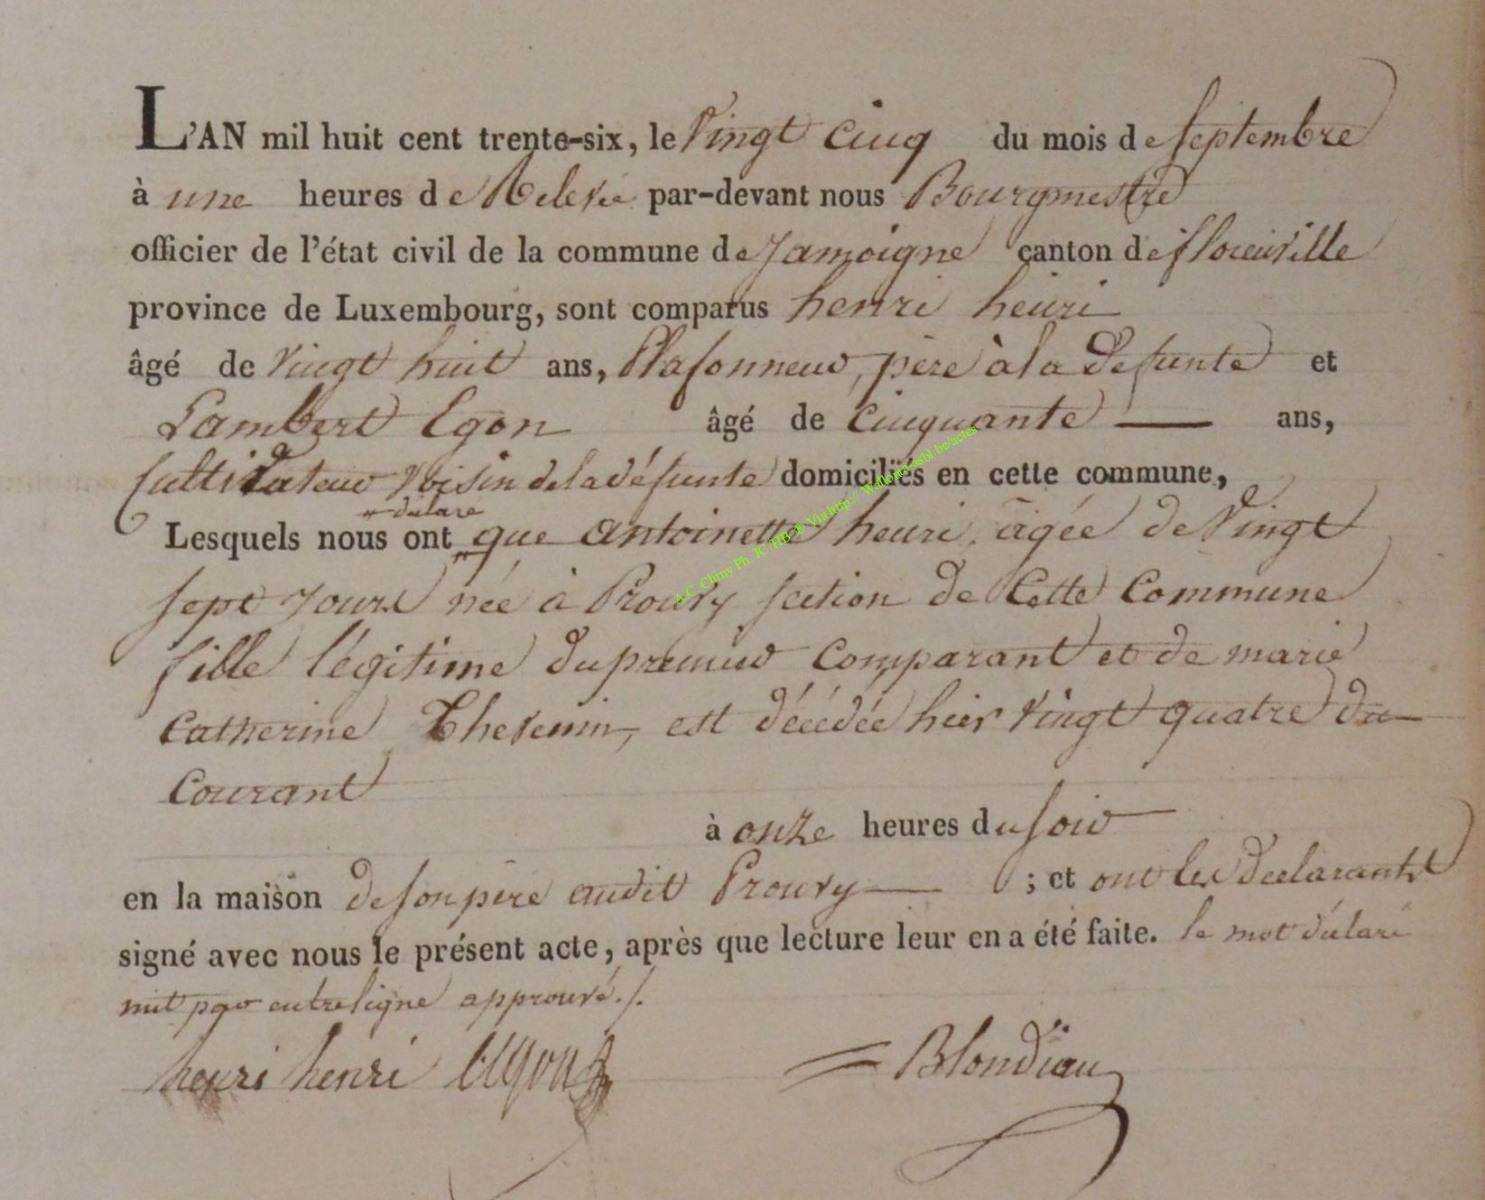 L'AN mil huit cent trente-six, le Vingt cinq du mois de septembre
à une heures de Relevée par-devant nous Bourgmestre
officier de l'état civil de la commune de Jamoigne canton de florenville
province de Luxembourg, sont comparus henri henri
âgé de vingt huit ans, Plafonneur, père à la defunte et
Lambert Egon âgé de cinquante ans,
Cultivateur voisin de la défunte domiciliés en cette commune,
déclaré
Lesquels nous ont que antoinette henri, âgée de Vingt
sept jours née à Prouvy section de Cette Commune
fille légitime du premier comparant et de marie
Catherine Thevenin, est décédée hier vingt quatre du
Courant
à onze heures du soir
en la maison de son père audit Prouvy ; et ont les déclarants
signé avec nous le présent acte, après que lecture leur en a été faite. le mot déclaré
mit par entreligne approuvé./.
henri henri Blondiau